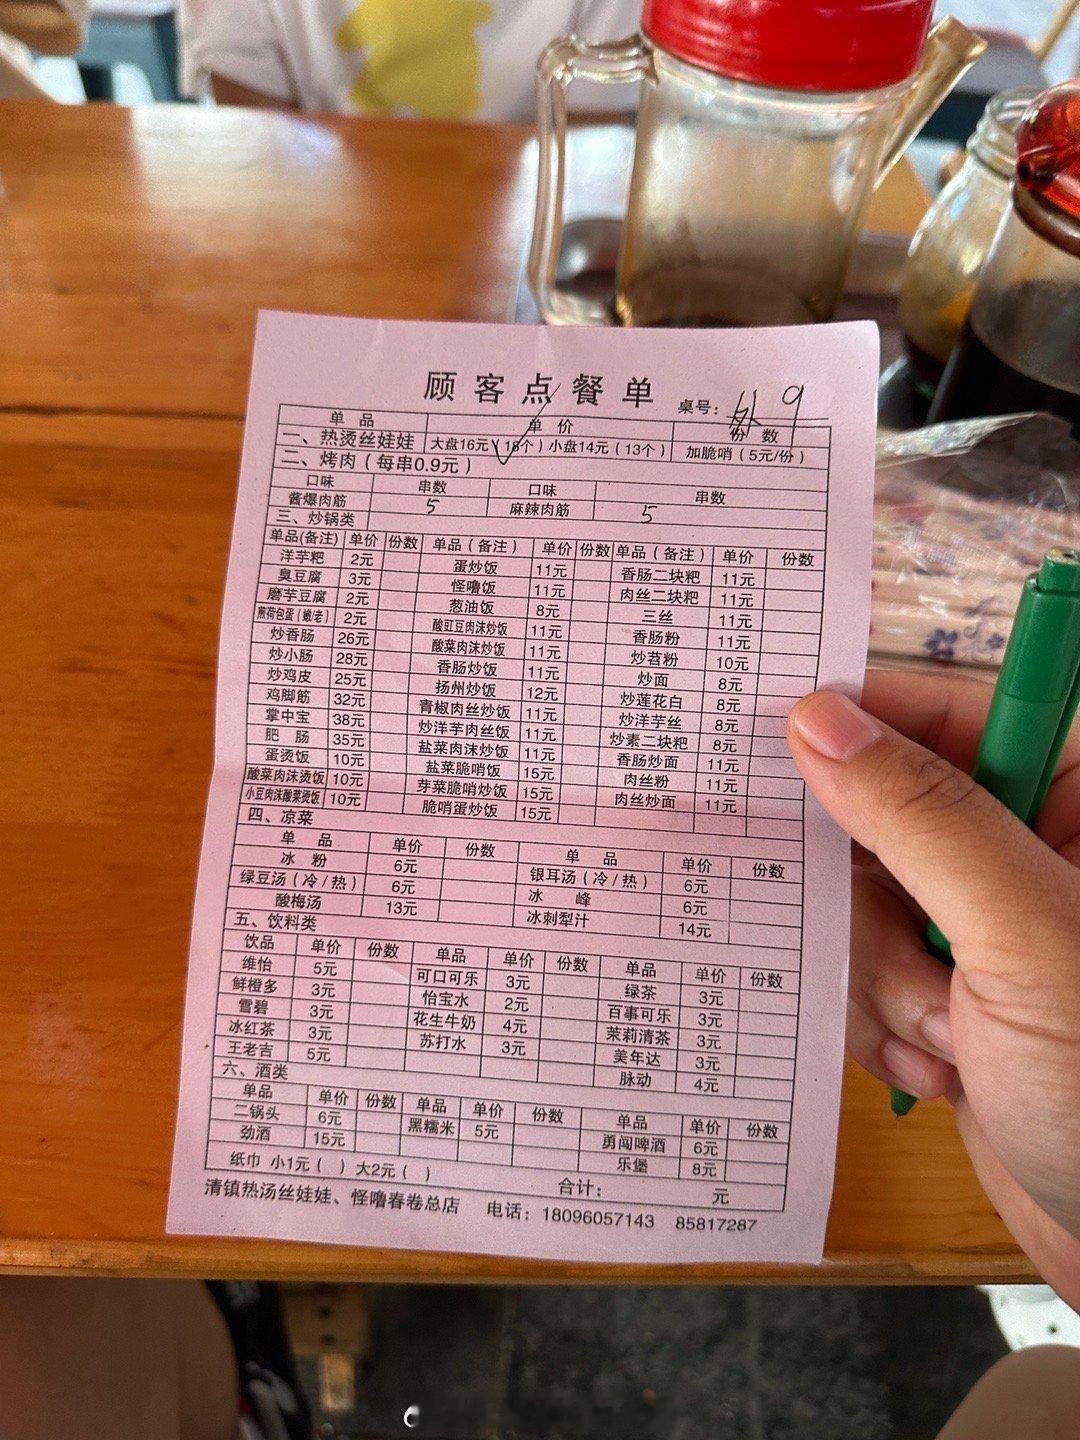 顾客点餐单
桌号：外 9
单品 单价 份数
一、热烫丝娃娃 大盘16元（18个）小盘14元（13个） 加脆哨（5元/份）
二、烤肉（每串0.9元）
口味 串数 口味 串数
酱爆肉筋 5 麻辣肉筋 5
三、炒锅类
单品(备注) 单价 份数 单品（备注） 单价 份数 单品（备注） 单价 份数
洋芋粑 2元 蛋炒饭 11元 香肠二块粑 11元
臭豆腐 3元 怪噜饭 11元 肉丝二块粑 11元
磨芋豆腐 2元 葱油饭 8元 三丝 11元
煎荷包蛋（嫩/老） 2元 酸豇豆肉沫炒饭 11元 香肠粉 11元
炒香肠 26元 酸菜肉沫炒饭 11元 炒苕粉 10元
炒小肠 28元 香肠炒饭 11元 炒面 8元
炒鸡皮 25元 扬州炒饭 12元 炒莲花白 8元
鸡脚筋 32元 青椒肉丝炒饭 11元 炒洋芋丝 8元
掌中宝 38元 炒洋芋肉丝饭 11元 炒素二块粑 8元
肥肠 35元 盐菜肉沫炒饭 11元 香肠炒面 11元
蛋烫饭 10元 盐菜脆哨饭 15元 肉丝粉 11元
酸菜肉沫烫饭 10元 芽菜脆哨炒饭 15元 肉丝炒面 11元
小豆肉沫酸菜烫饭 10元 脆哨蛋炒饭 15元
四、凉菜
单品 单价 份数 单品 单价 份数
冰粉 6元 银耳汤（冷/热） 6元
绿豆汤（冷/热） 6元 冰峰 6元
酸梅汤 13元 冰刺犁汁 14元
五、饮料类
饮品 单价 份数 单品 单价 份数 单品 单价 份数
维怡 5元 可口可乐 3元 绿茶 3元
鲜橙多 3元 怡宝水 2元 百事可乐 3元
雪碧 3元 花生牛奶 4元 茉莉清茶 3元
冰红茶 3元 苏打水 3元 美年达 3元
王老吉 5元 脉动 4元
六、酒类
单品 单价 份数 单品 单价 份数 单品 单价 份数
二锅头 6元 黑糯米 5元 勇闯啤酒 6元
劲酒 15元 乐堡 8元
纸巾 小1元（ ）大2元（ ） 合计： 元
清镇热汤丝娃娃、怪噜春卷总店 电话：18096057143 85817287